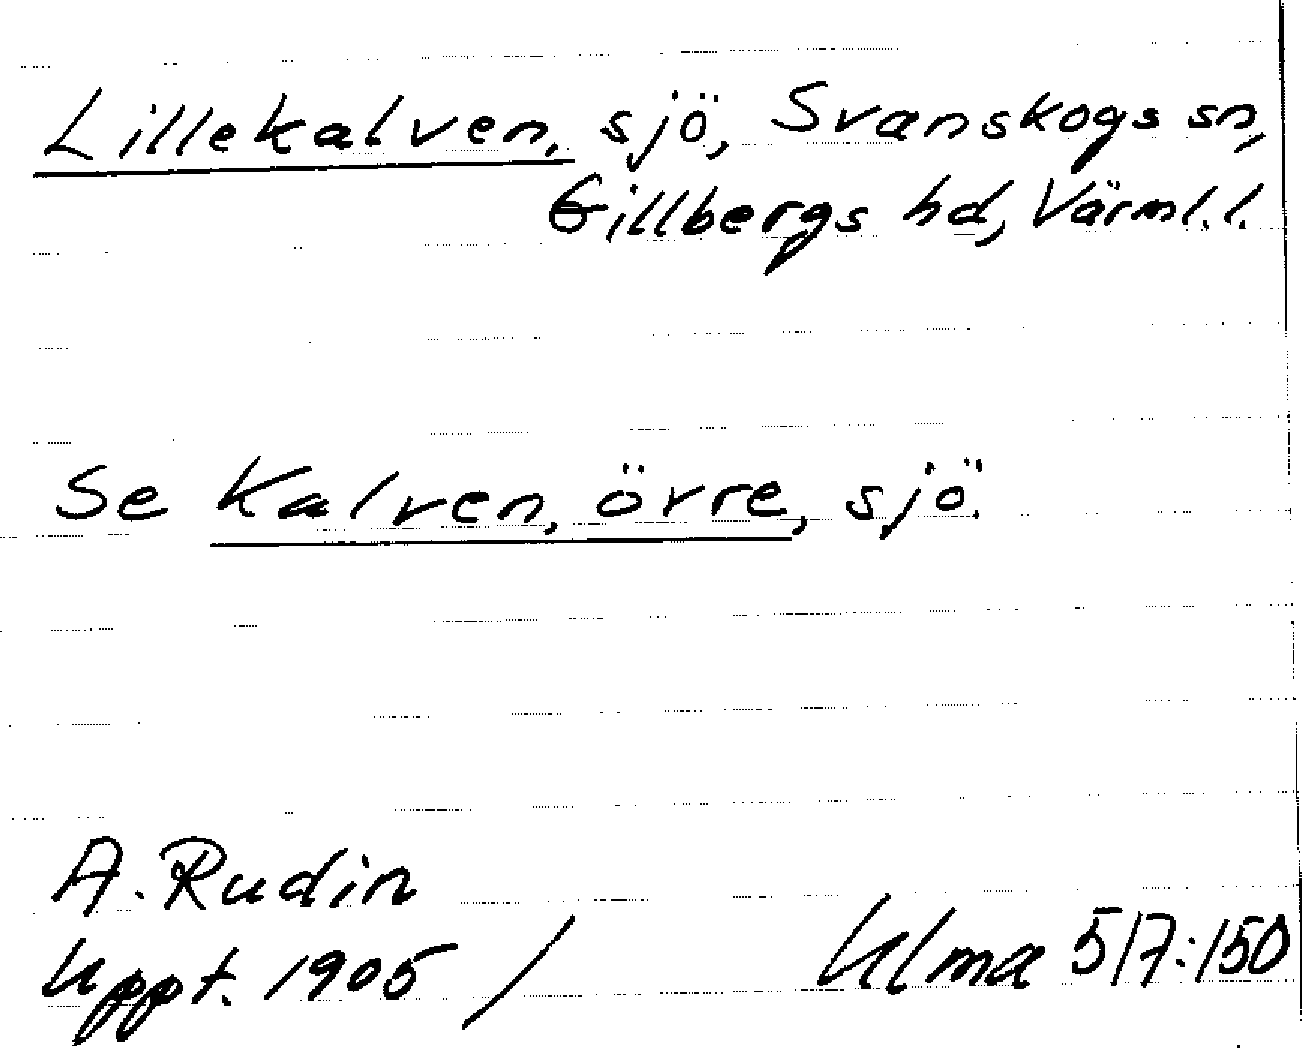 Lillekalven, sjö, Svanskogs sn,
Gillbergs hd, Värml. l.
Se Kalven, övre, sjö.
A. Rudin
Uppt. 1905 /
Ulma 517:150